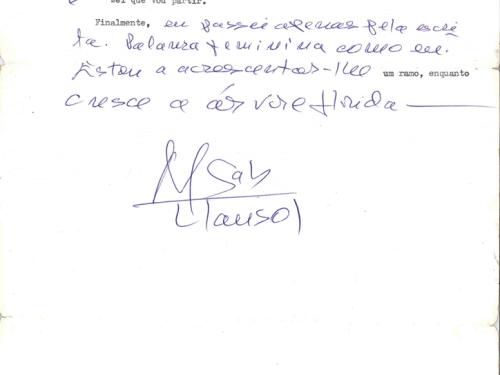 sei que vou partir.
Finalmente, eu passei apenas pela escri-
ta. Palavra feminina como eu.
Estou a acrescentar-lhe um ramo, enquanto
cresce a árvore florida
M Gab
Llansol